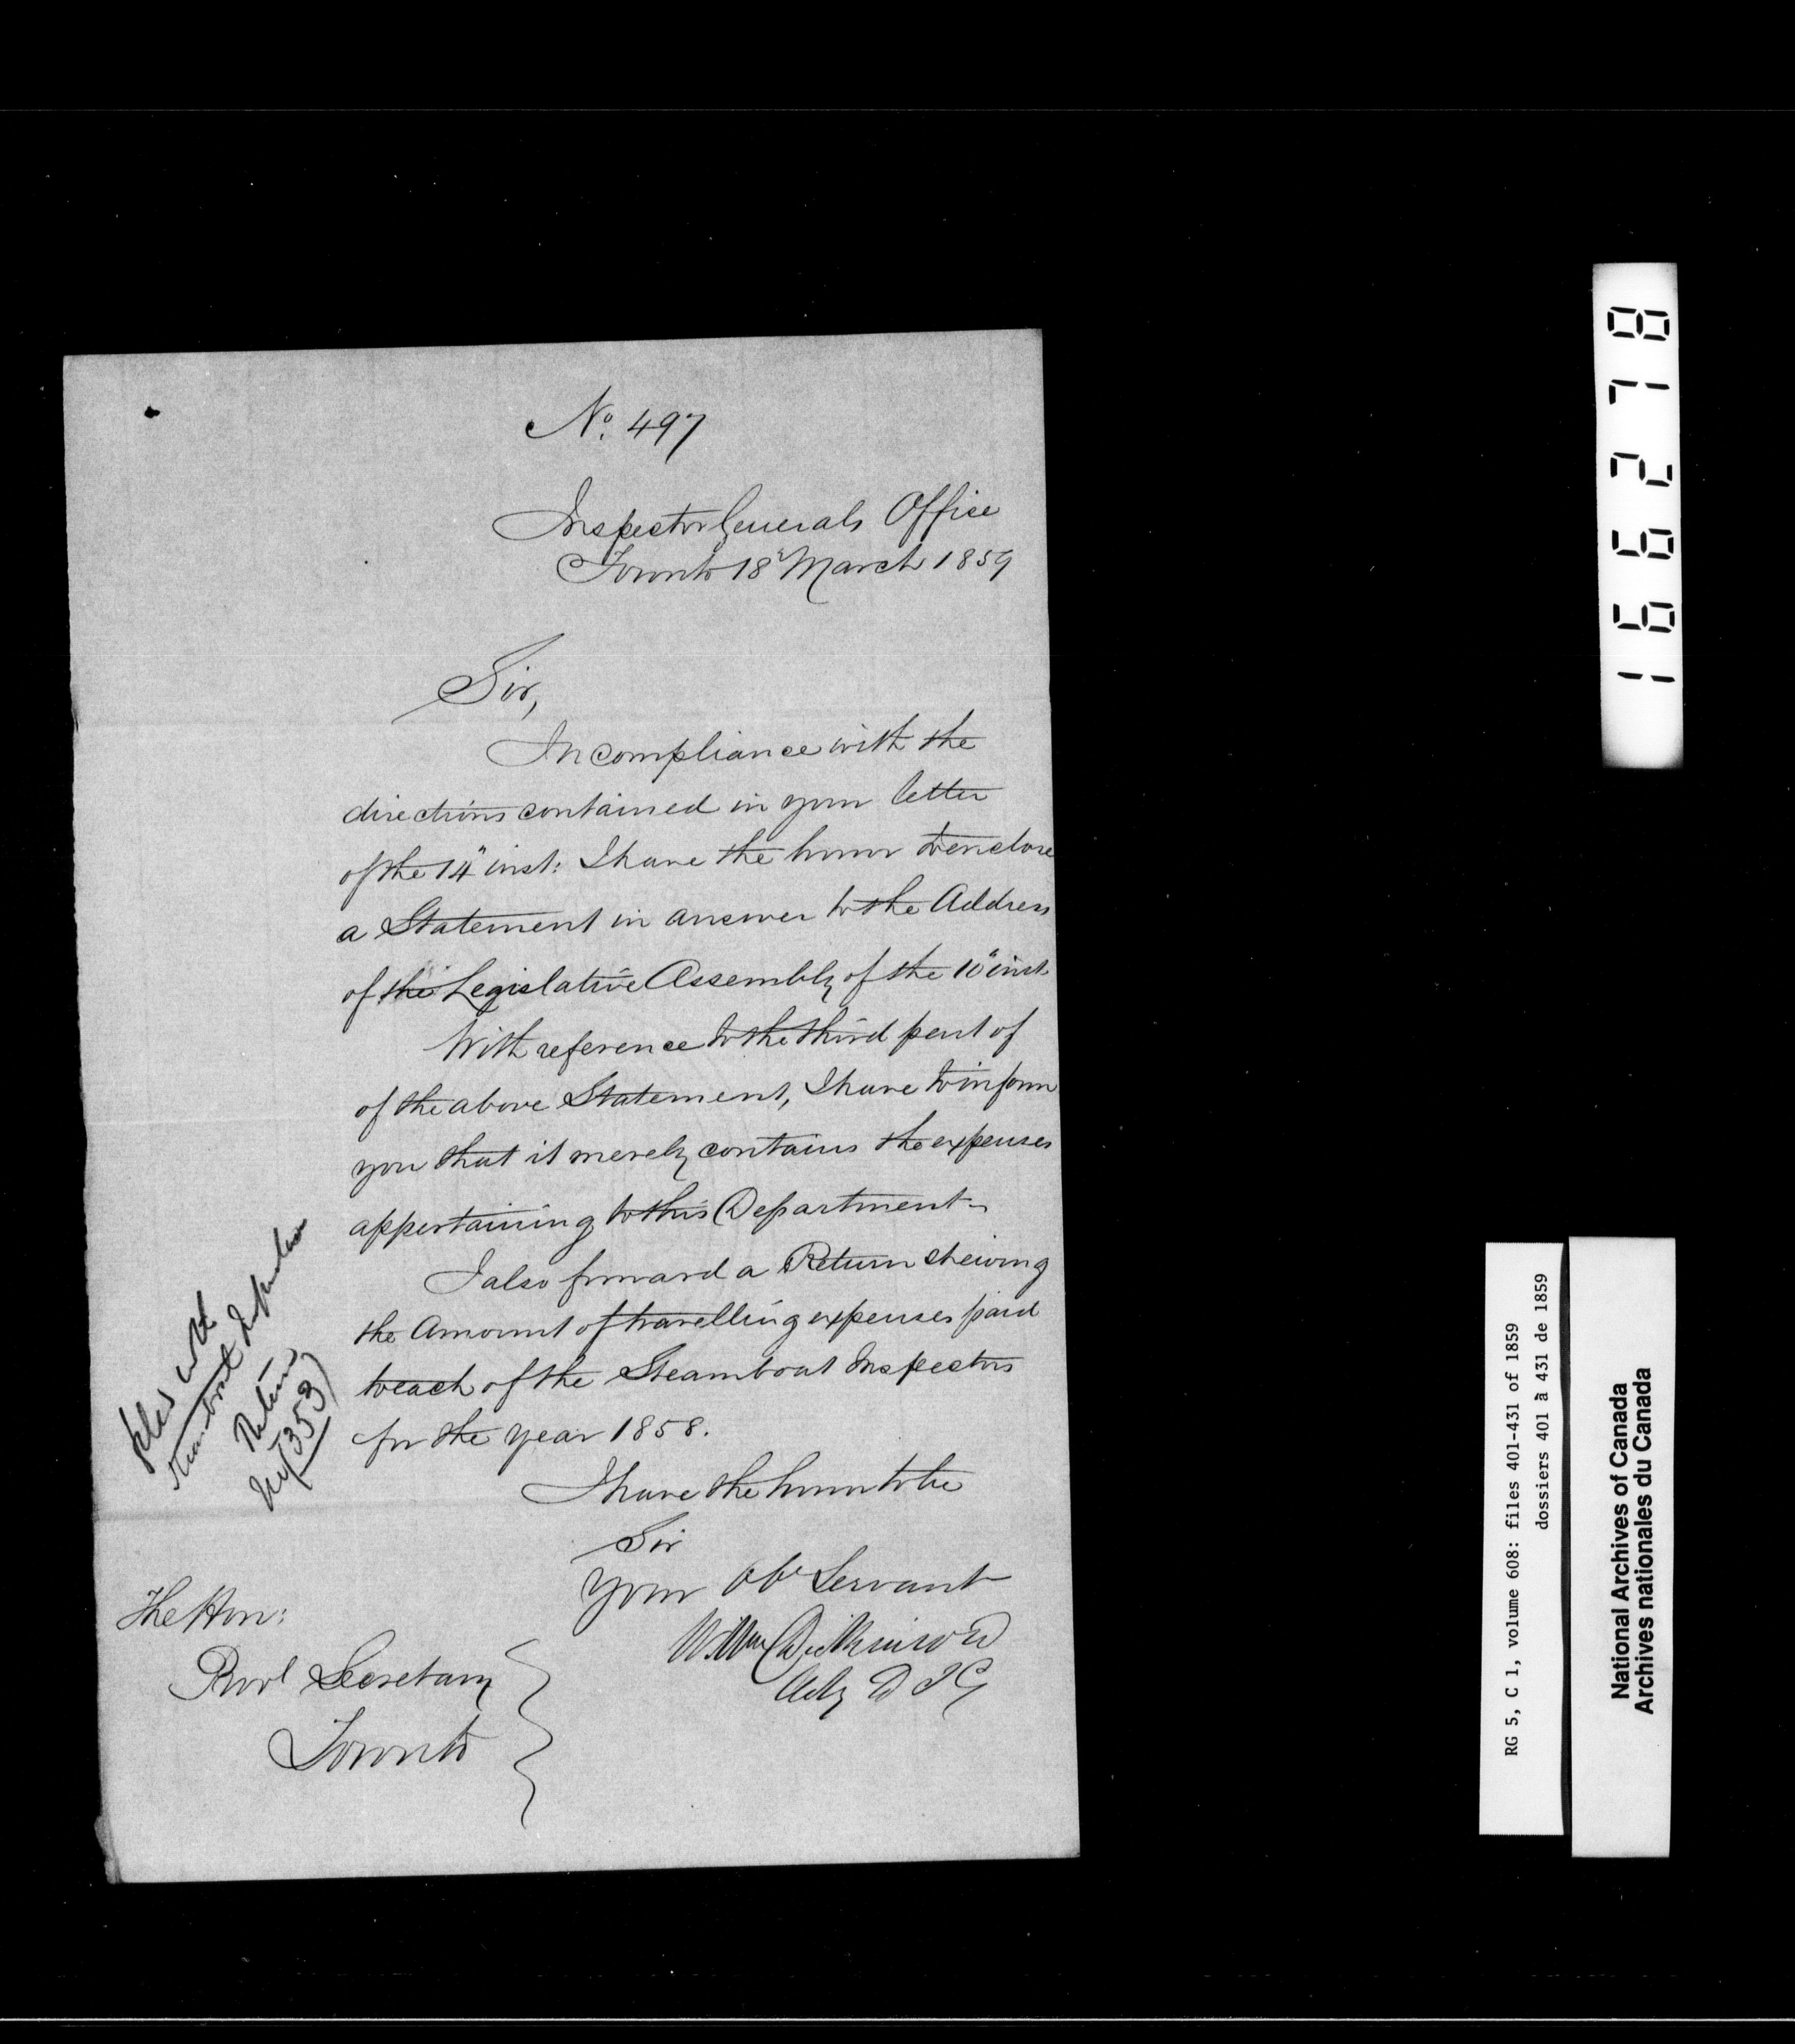 No. 497
Inspector Generals Office
Toronto 18th March 1859
Sir,
In compliance with the
directions contained in your letter
of the 14" inst: I have the honor to enclose
a Statement in answer to the Address
of the Legislative Assembly of the 10" inst.
With reference to the third part of
of the above Statement, I have to inform
you that it merely contains the expenses
appertaining to this Department -
I also forward a Return shewing
the Amount of travelling expenses paid
to each of the Steamboat Inspectors
for the year 1858.
I have the honor to be
Sir
Your Obt Servant
Wm Dickinson
Actg D I G
The Hon:
Provl Secretary
Toronto
files with
Steamboat Inspection
Return
353
166278
RG 5, C 1, volume 608: files 401-431 of 1859
dossiers 401 à 431 de 1859
National Archives of Canada
Archives nationales du Canada